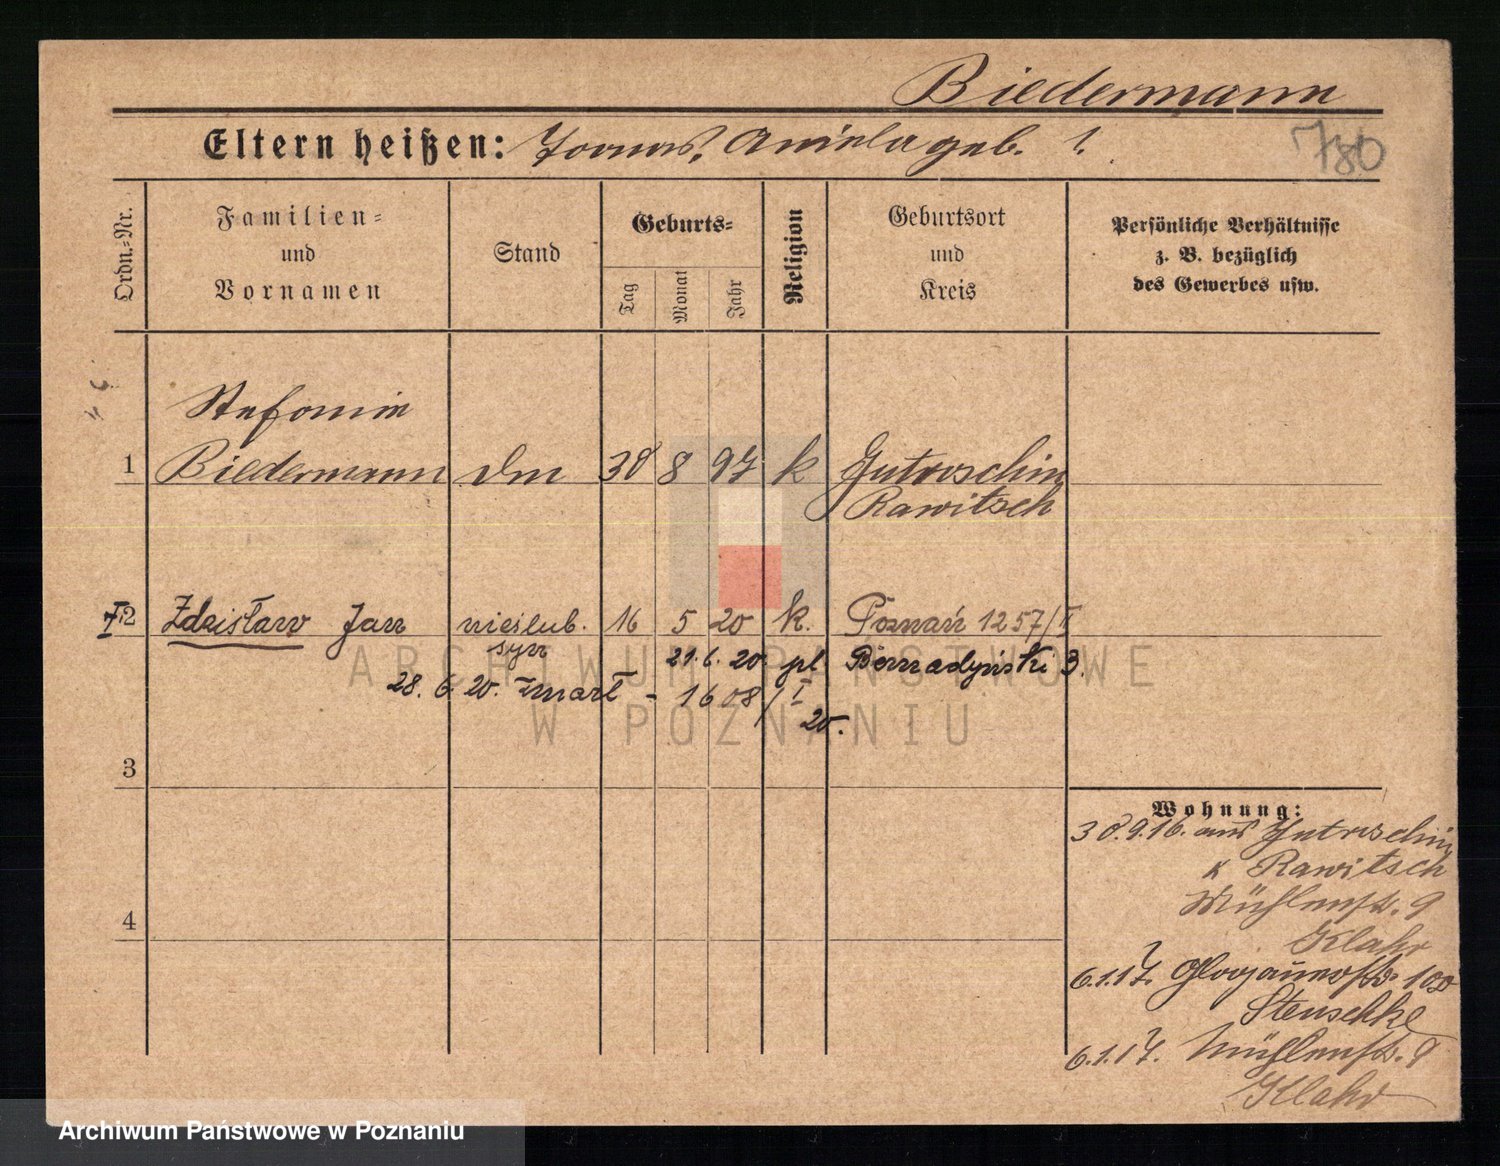 Biedermann
Eltern heißen: geb. ?
780
Ordn.=Nr.
Familien=
und
Vornamen
Stand
Geburts=
Tag
Monat
Jahr
Religion
Geburtsort
und
Kreis
Persönliche Verhältnisse
z. B. bezüglich
des Gewerbes usw.
Stefanie
1 Biedermann 30 8 97 k Jutroschin
Rawitsch
2 Zdzisław Jan nieślub. 16 5 20 k. Poznań 1257/I
syn 21.6.20 pl. Bernadyński 3.
28.6.20. zmarł - 1608/I
20.
3
4
Wohnung:
30.9.16. aus Jutroschin
K Rawitsch
Mühlenstr. 9
Klahr
6.1.17. Glogauerstr. 100
Stenschke
6.1.17. Mühlenstr. 9
Klahr
ARCHIWUM PAŃSTWOWE
W POZNANIU
Archiwum Państwowe w Poznaniu